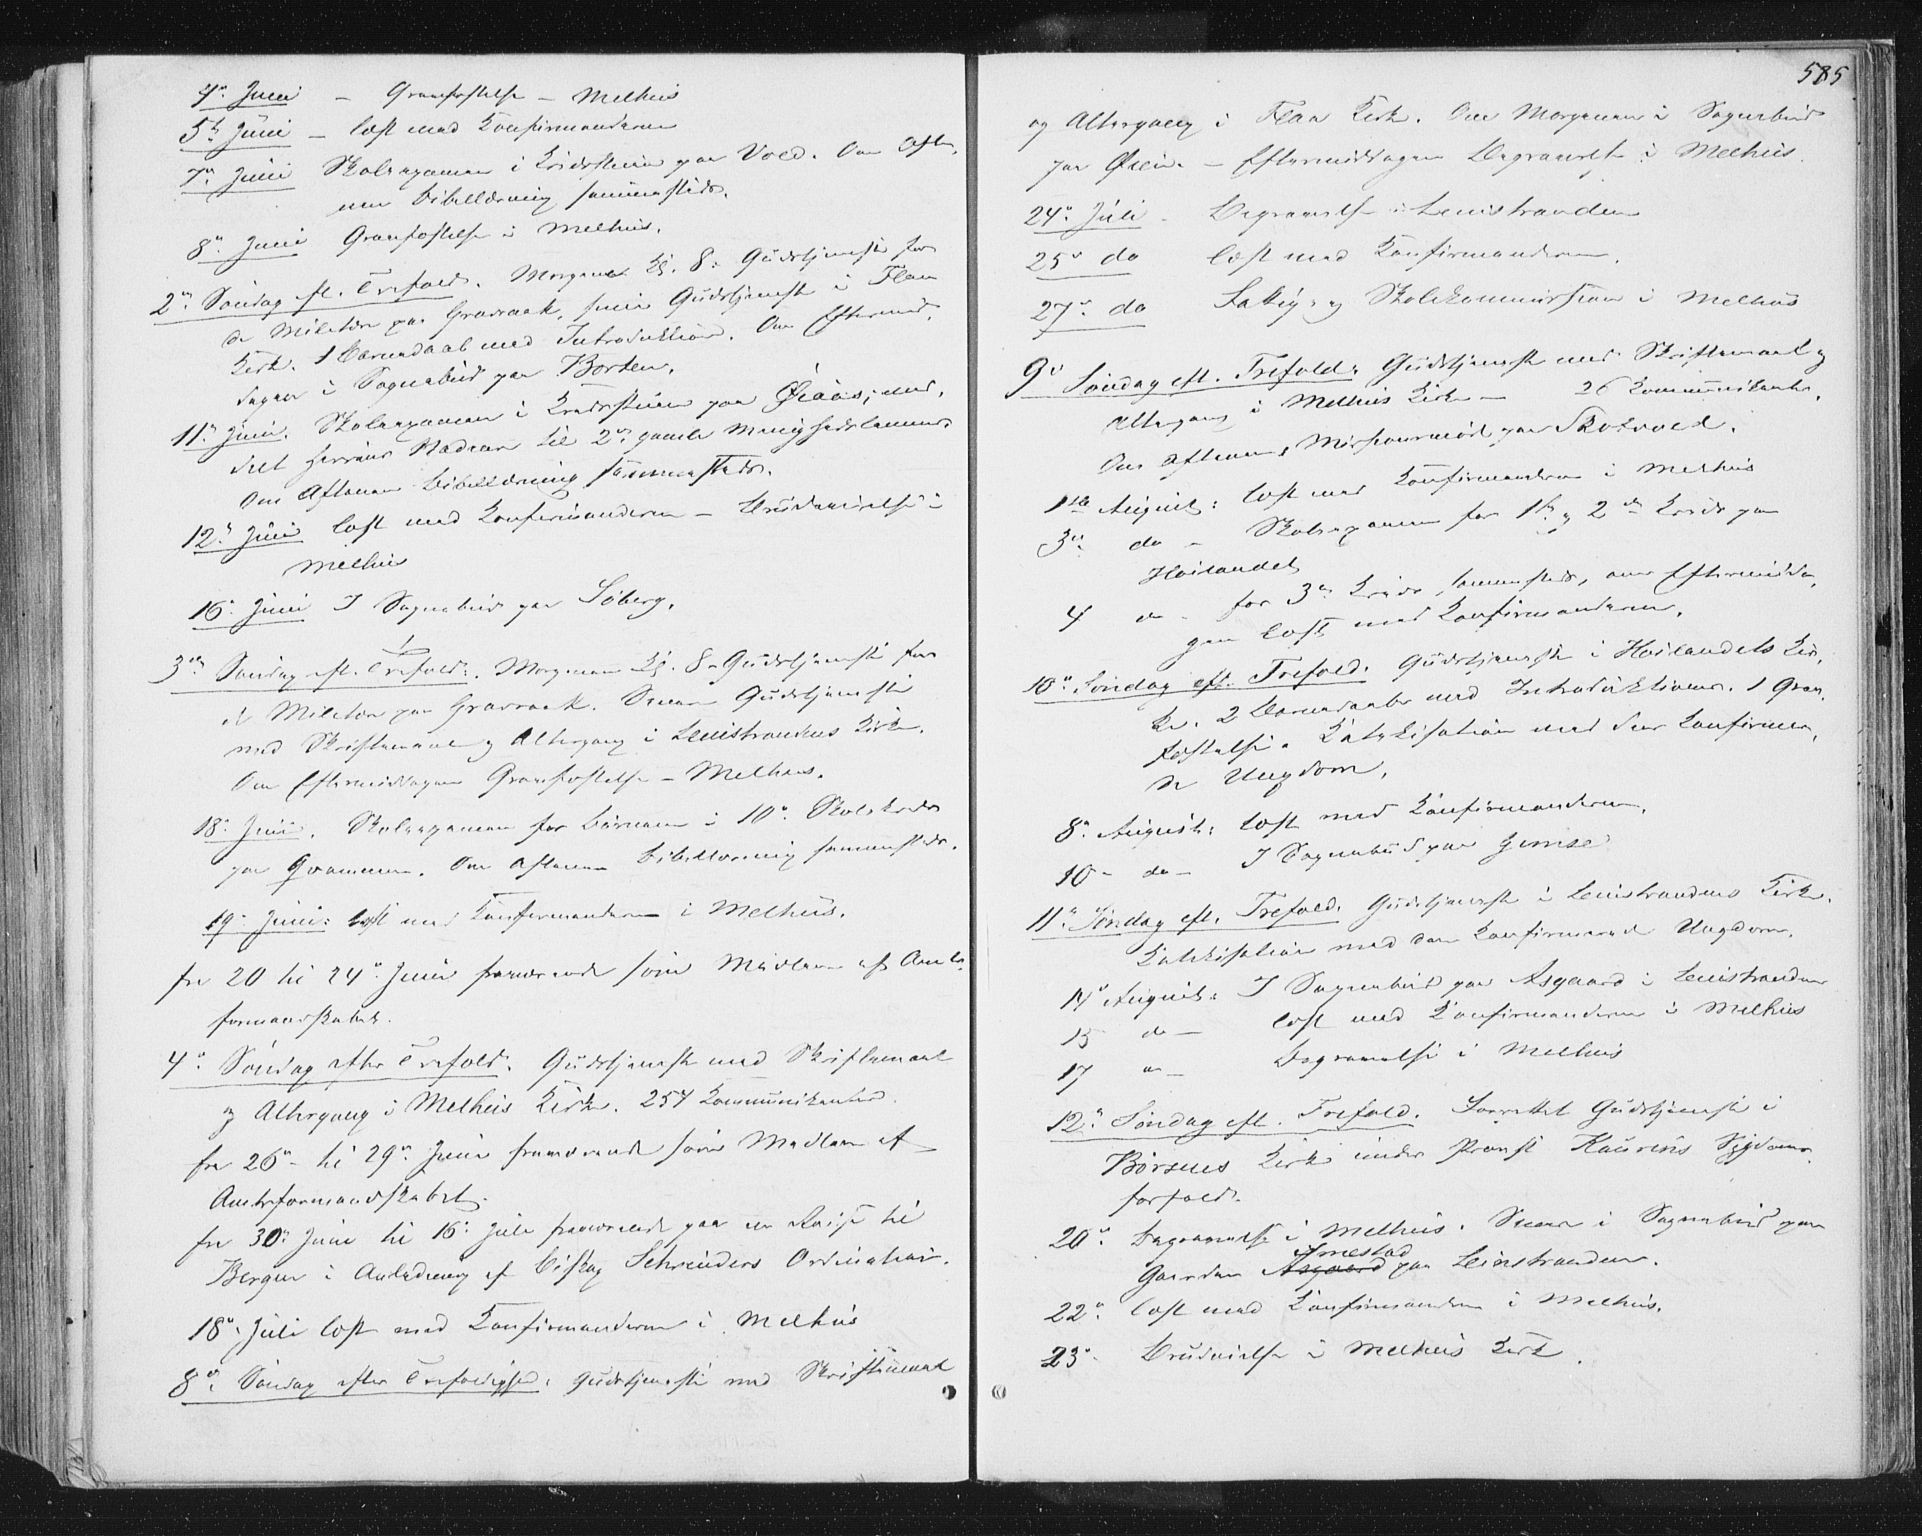 4de Juni – Gravfæstelse – Melhus
5te Juni – læst med Konfirmanderne
7de Juni Skoleexamen i Kredsskolen paa Vold. Om Afte-
nen Bibellæsning sammesteds.
8de Juni Gravfæstelse i Melhus.
2den Søndag eft. Trefold. Morgenen Kl. 8: Gudstjeneste for
de Militære paa Gravraak, siden Gudstjeneste i Flaa
Kirke. 1 Barnedaab med Introduktion. Om Eftermid-
dagen i Sognebud paa Borten.
11te Juni. Skoleexamen i Kredsskolen paa Øiaas; med-
delt Herrens Nadvere til 2de gamle Menighedslemmer
Om Aftenen Bibellæsning sammesteds.
12te Juni læst med Konfirmanderne – Brudevielse i
Melhus
16de Juni I Sognebud paa Søberg.
3die Søndag eft. Trefold. Morgenen Kl. 8 – Gudstjeneste for
de Militære paa Gravraak. Senere Gudstjeneste
med Skriftemaal og Altergang i Leinstrandens Kirke.
Om Eftermiddagen Gravfæstelse – Melhus.
18de Juni. Skoleexamen for Børnene i 10de Skolekreds
paa Qvammen. Om Aftenen Bibellæsning sammesteds.
19de Juni: læst med Konfirmanderne i Melhus.
fra 20 til 24de Juni fraværende som Medlem af Amts-
formandskabet.
4de Søndag efter Trefold. Gudstjeneste med Skriftemaal
og Altergang i Melhus Kirke. 257 Kommunikanter
fra 26de til 29de Juni fraværende som Medlem af
Amtsformandskabet.
fra 30te Juni til 16de Juli fraværende paa en Reise til
Bergen i Anledning af Biskop Schreuders Ordination.
18de Juli læst med Konfirmanderne i Melhus
8de Søndag efter Trefoldighed: Gudstjeneste med Skriftemaal
585
og Altergang i Flaa Kirke. Om Morgenen i Sognebud
paa Øien. – Eftermiddagen Begravelse i Melhus.
24de Juli – Begravelse i Leinstranden
25de do læst med Konfirmanderne.
27de do Fattig- og Skolekommission i Melhus
9de Søndag eft. Trefold. Gudstjeneste med Skriftemaal og
Altergang i Melhus Kirke – 26 Kommunikanter.
Om Aftenen Missionsmøde paa Skotvold.
1ste August: læst med Konfirmanderne i Melhus
3die do – Skoleexamen for 1ste og 2den Kreds paa
Høilandet
4 do – for 3die Kreds sammesteds, om Eftermidda-
gen læst med Konfirmanderne.
10de Søndag eft. Trefold. Gudstjeneste i Høilandets Kir-
ke. 2 Barnedaab med Introduktioner. 1 Grav-
fæstelse. Katekisation med den konfirmere-
de Ungdom.
8de August: læst med Konfirmanderne.
10 – do – I Sognebud paa Gimse
11te Søndag eft. Trefold. Gudstjeneste i Leinstrandens Kirke.
Katekisation med den konfirmerede Ungdom.
14de August: I Sognebud paa Asgaard i Leinstranden
15 do – læst med Konfirmanderne i Melhus
17 do – Begravelse i Melhus
12te Søndag eft. Trefold. Forrettet Gudstjeneste i
Børsens Kirke under Provst Kaurins Sygdoms-
forfald.
20de Begravelse i Melhus. Senere i Sognebud paa
Gaarden Asgaard Smestad paa Leinstranden.
22de læst med Konfirmanderne i Melhus.
23de Brudevielse i Melhus Kirke.